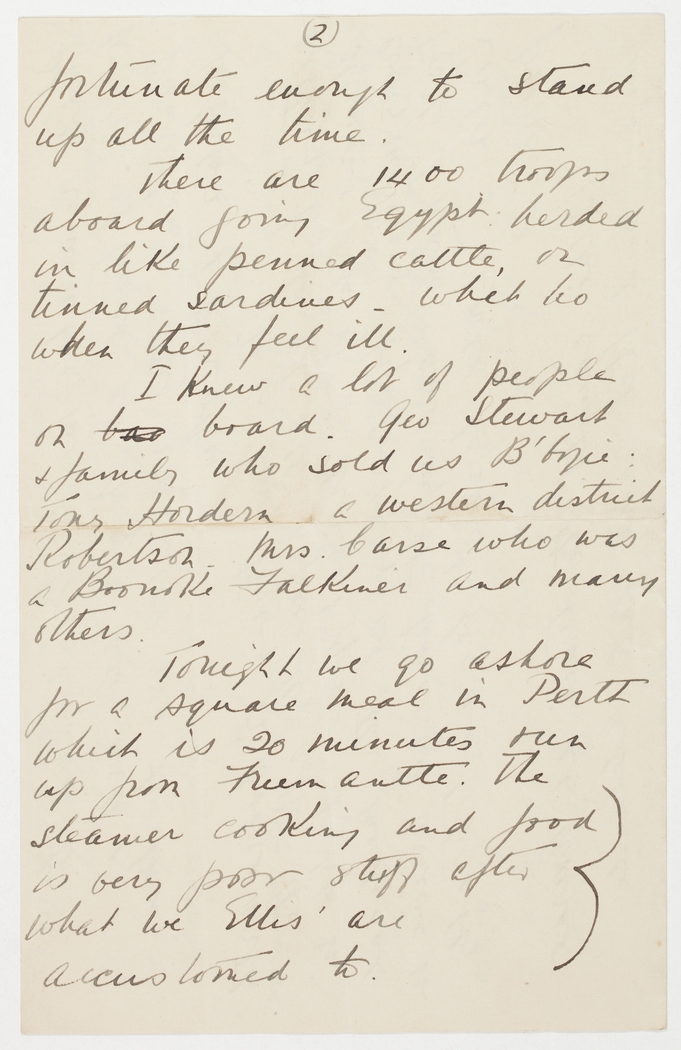 (2)
fortunate enough to stand
up all the time.
There are 1400 troops
aboard going Egypt: herded
in like penned cattle, or
tinned sardines - what ho
when they feel ill.
I knew a lot of people
on board. Geo Stewart
& family who sold us B'bogie:
Tony Hordern - a western district
Robertson - Mrs. Carse who was
a Boonoke Falkiner and many
others.
Tonight we go ashore
for a square meal in Perth
which is 20 minutes run
up from Freemantle. The
steamer cooking and food
is very poor stuff after
what we Ellis' are
accustomed to.